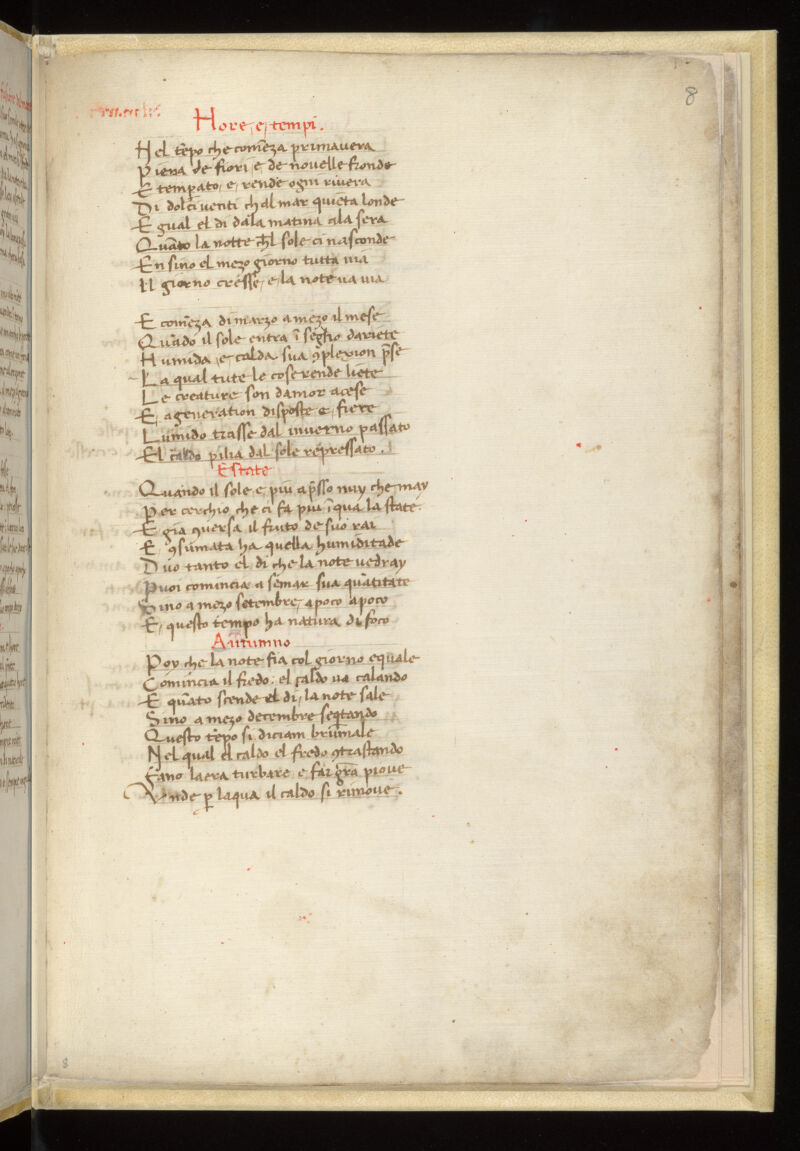 8
Hore, e, tempi.
Nel tēpo che comēza primavera
Piena de fiori, e de novelle fronde
E tempato, e, rende ogni rivera
Di dolci venti ch al mar quieta londe
E gual el di dala matina ala sera
Quāto la notte chel sole ci nasconde
En sino el mezo giorno tutta via
Il giorno cresse, e la note va via
E comēza di marzo a mezo il mese
Quādo il sole entra ī segno dariete
Humida, e calda sua ꝯplexion p̄se
La qual tute le cose rende liete
Le creature son damor acese
E, a generation disposte e, fiere
Lumido trasse dal inverno passato
El caldo pilia dal sole repressato.
Estate
Quando il sole e piu ap̄sso nuy che may
Per cerchio che ci fa piu īqua la state.
E gia ꝯversa il fruto de suo rai
E ꝯsumata ha quella humiditade
Duo tanto el di che la note vedray
Puoi comincia a semar sua quātitate
Sino a mezo setembre, apoco apoco
E, questo tempo ha natura di foco
Autumno
Poy che la note fia col giorno equale
Comincia il fredo: el caldo va calando
E quāto scende el di, la note sale
Sino a mezo decembre seqtando
Questo tēpo si diciam brumale
Nel qual el caldo el fredo ꝯtrastando
Fano laera turbare e far grā piove
Unde ꝑ laqua il caldo si rimove.
8